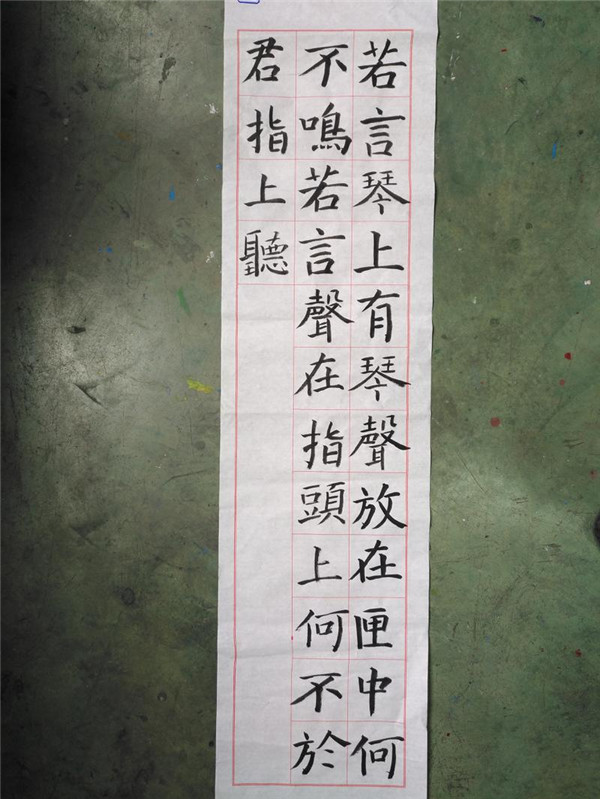 若言琴上有琴聲放在匣中何
不鳴若言聲在指頭上何不於
君指上聽